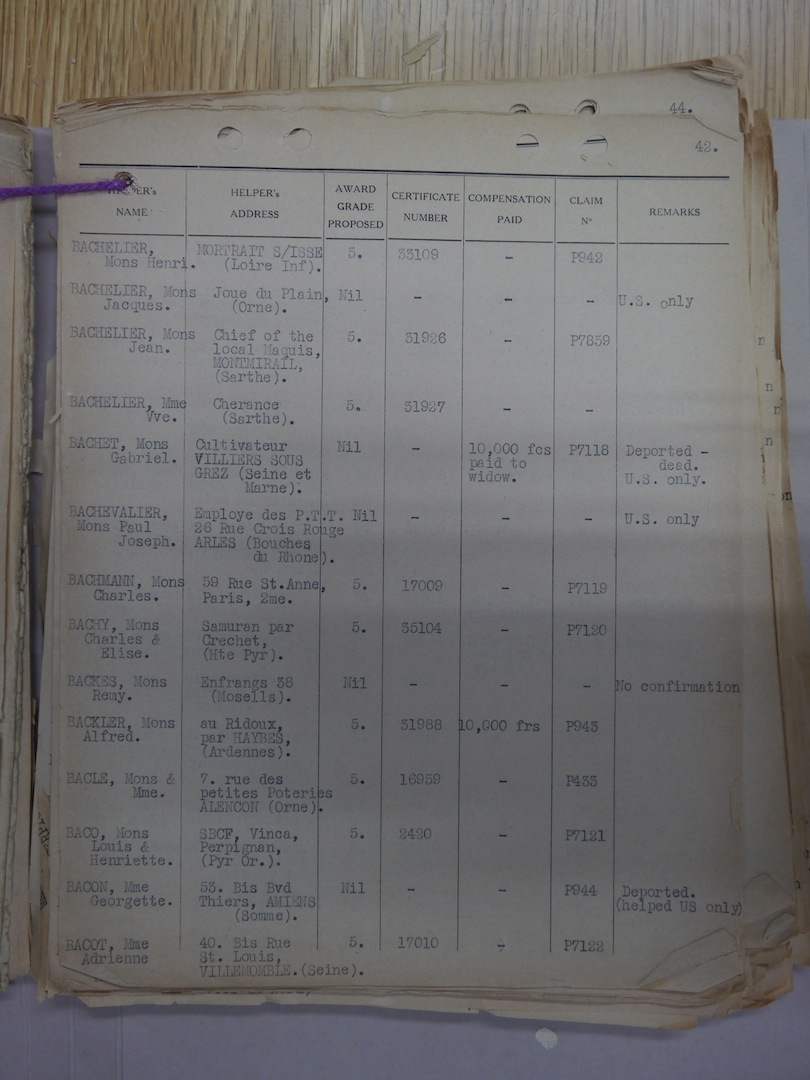 44.
42.
HELPER's NAME HELPER's ADDRESS AWARD GRADE PROPOSED CERTIFICATE NUMBER COMPENSATION PAID CLAIM No REMARKS
BACHELIER, MORTRAIT S/ISSE 5. 33109 - P942
Mons Henri. (Loire Inf).
BACHELIER, Mons Joue du Plain, Nil - - - U.S. only
Jacques. (Orne).
BACHELIER, Mons Chief of the 5. 31926 - P7859
Jean. local Maquis,
MONTMIRAIL,
(Sarthe).
BACHELIER, Mme Cherance 5. 31927 - -
Vve. (Sarthe).
BACHET, Mons Cultivateur Nil - 10,000 fcs P7118 Deported -
Gabriel. VILLIERS SOUS paid to dead.
GREZ (Seine et widow. U.S. only.
Marne).
BACHEVALIER, Employe des P.T.T. Nil - - - U.S. only
Mons Paul 26 Rue Crois Rouge
Joseph. ARLES (Bouches
du Rhone).
BACHMANN, Mons 59 Rue St.Anne, 5. 17009 - P7119
Charles. Paris, 2me.
BACHY, Mons Samuran par 5. 35104 - P7120
Charles & Crechet,
Elise. (Hte Pyr).
BACKES, Mons Enfrangs 38 Nil - - - No confirmation
Remy. (Mosells).
BACKLER, Mons au Ridoux, 5. 31988 10,000 frs P943
Alfred. par HAYBES,
(Ardennes).
BACLE, Mons & 7. rue des 5. 16959 - P433
Mme. petites Poteries
ALENCON (Orne).
BACO, Mons SBCF, Vinca, 5. 2420 - P7121
Louis & Perpignan,
Henriette. (Pyr Or.).
BACON, Mme 53. Bis Bvd Nil - - P944 Deported.
Georgette. Thiers, AMIENS (helped US only)
(Somme).
BACOT, Mme 40. Bis Rue 5. 17010 - P7122
Adrienne St. Louis,
VILLEMOMBLE.(Seine).